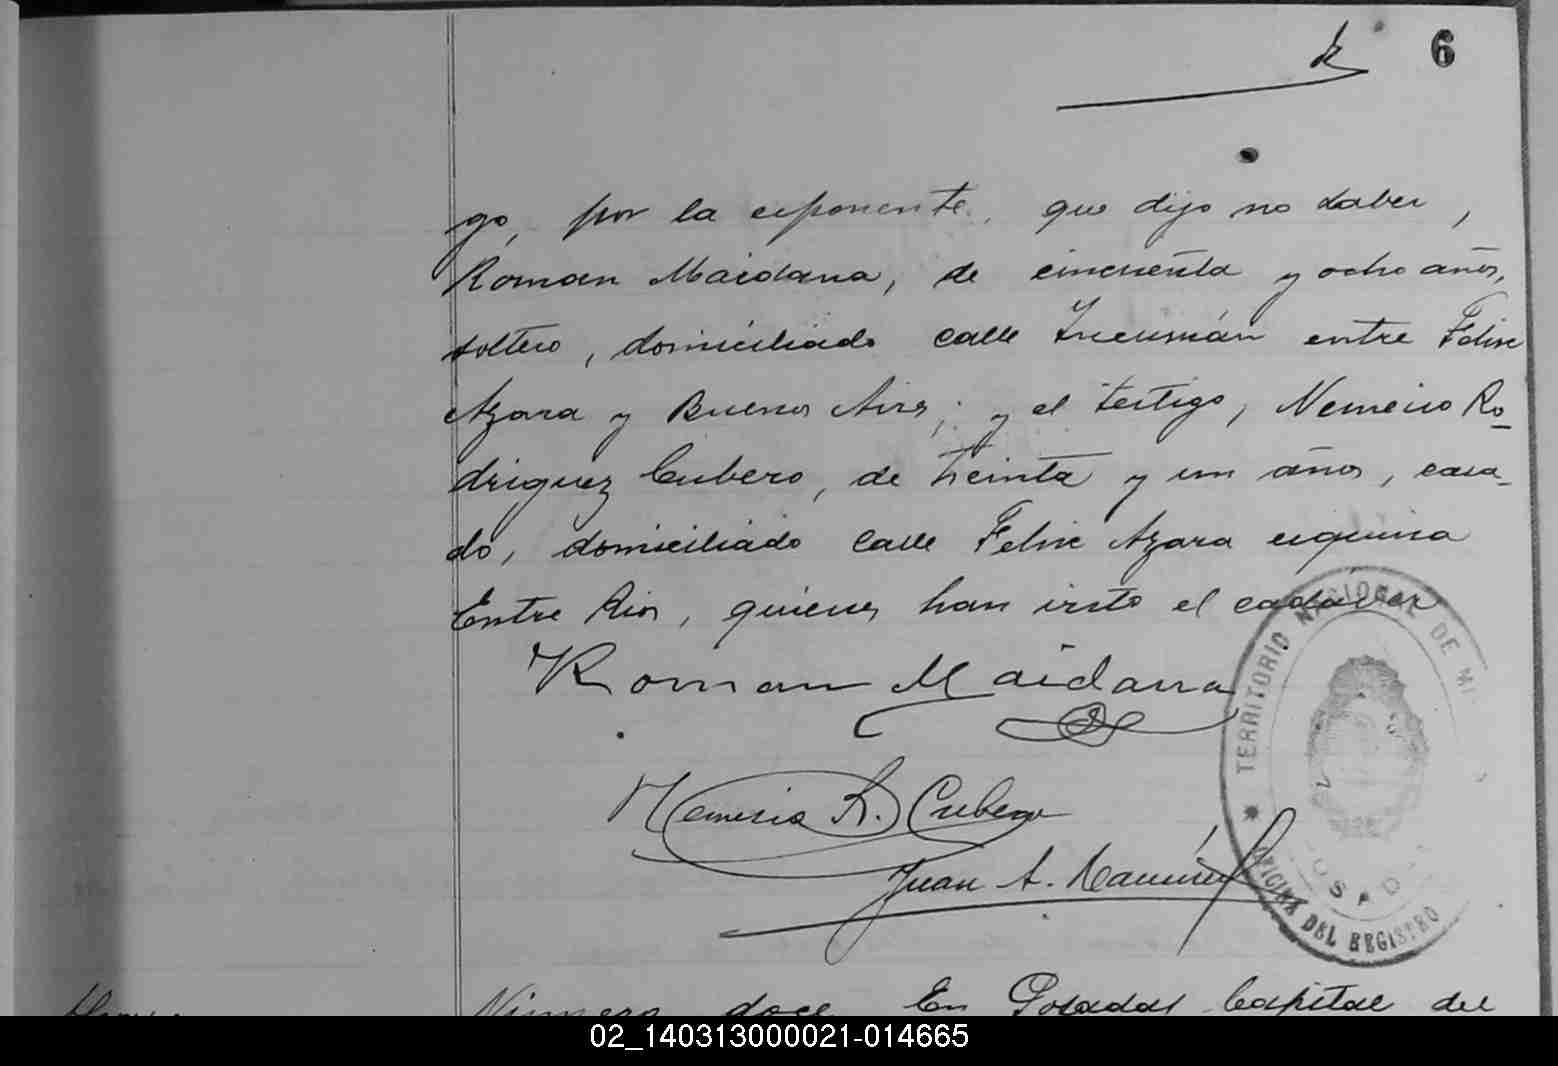 6
go, por la exponente, que dijo no saber,
Roman Maidana, de cincuenta y ocho años,
soltero, domiciliado calle Tucumán entre Felix
Azara y Buenos Aires; y el testigo, Nemecio Ro-
driguez Cubero, de treinta y un años, casa-
do, domiciliado calle Felix Azara esquina
Entre Rios, quienes han visto el cadáver
Roman Maidana
Nemesio R. Cubero
Juan A. Ramírez
TERRITORIO NACIONAL DE MI
POSADAS
OFICINA DEL REGISTRO
Número doce En Posadas Capital del
02_140313000021-014665